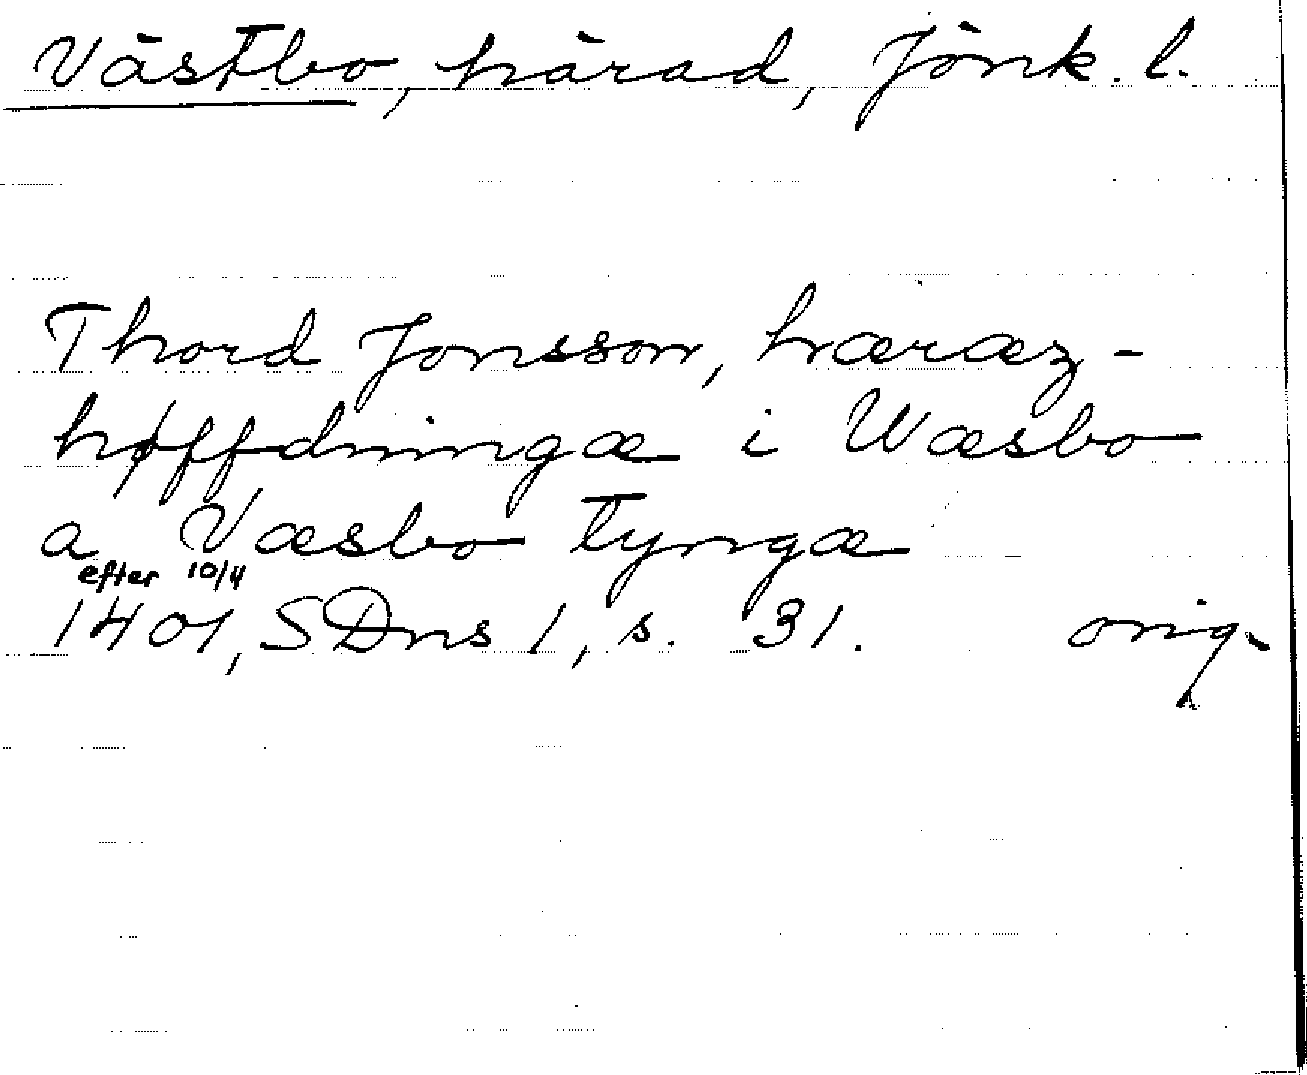 Västbo, härad, Jönk. l.
Thord Jonsson, hæræz-
høffdninga i Wæsbo
a Væsbo tyngæ
efter 10/4
1401, SDns 1, s. 31. orig.